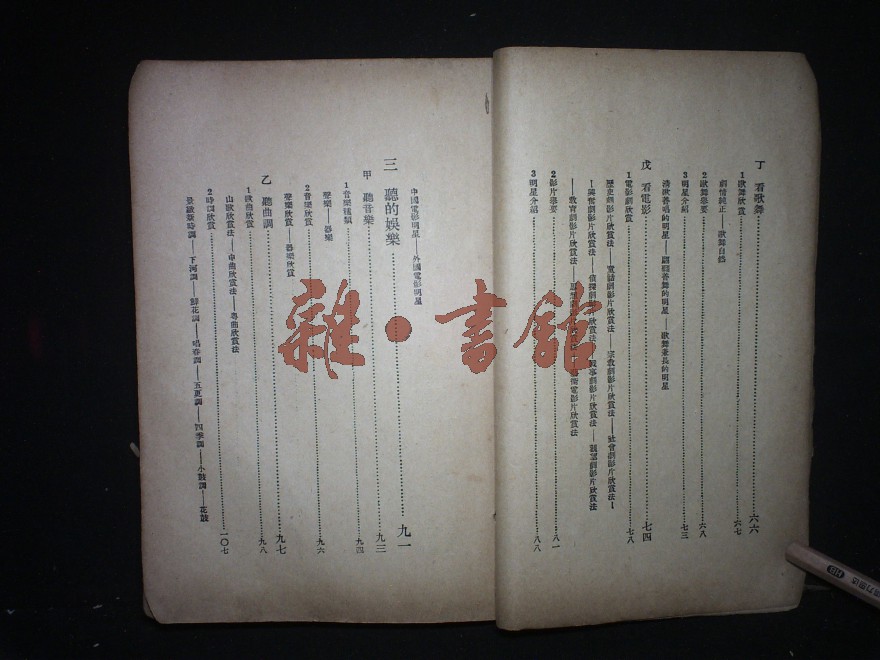 丁 看歌舞……六六
1歌舞欣賞……六七
劇情純正——歌舞自然
2歌舞舉要……六八
3明星介紹……七三
清歌善唱的明星——翩翩善舞的明星——歌舞兼長的明星
戊 看電影……七四
1電影劇欣賞……七八
歷史劇影片欣賞法——童話劇影片欣賞法——宗教劇影片欣賞法——社會劇影片欣賞法
偵探劇影片欣賞法——戰爭劇影片欣賞法
——教育劇影片欣賞法
2影片舉要……八一
3明星介紹……八八
中國電影明星——外國電影明星
三 聽的娛樂……九一
甲 聽音樂……九三
1音樂種類……九四
聲樂——器樂
2音樂欣賞……九六
聲樂欣賞——器樂欣賞
乙 聽曲調……九七
1歌曲欣賞……九八
山歌欣賞法——申曲欣賞法——粵曲欣賞法
2時調欣賞……一〇七
下河調——鮮花調——唱春調——五更調——四季調——小鼓調——花鼓
雜·書館
HB